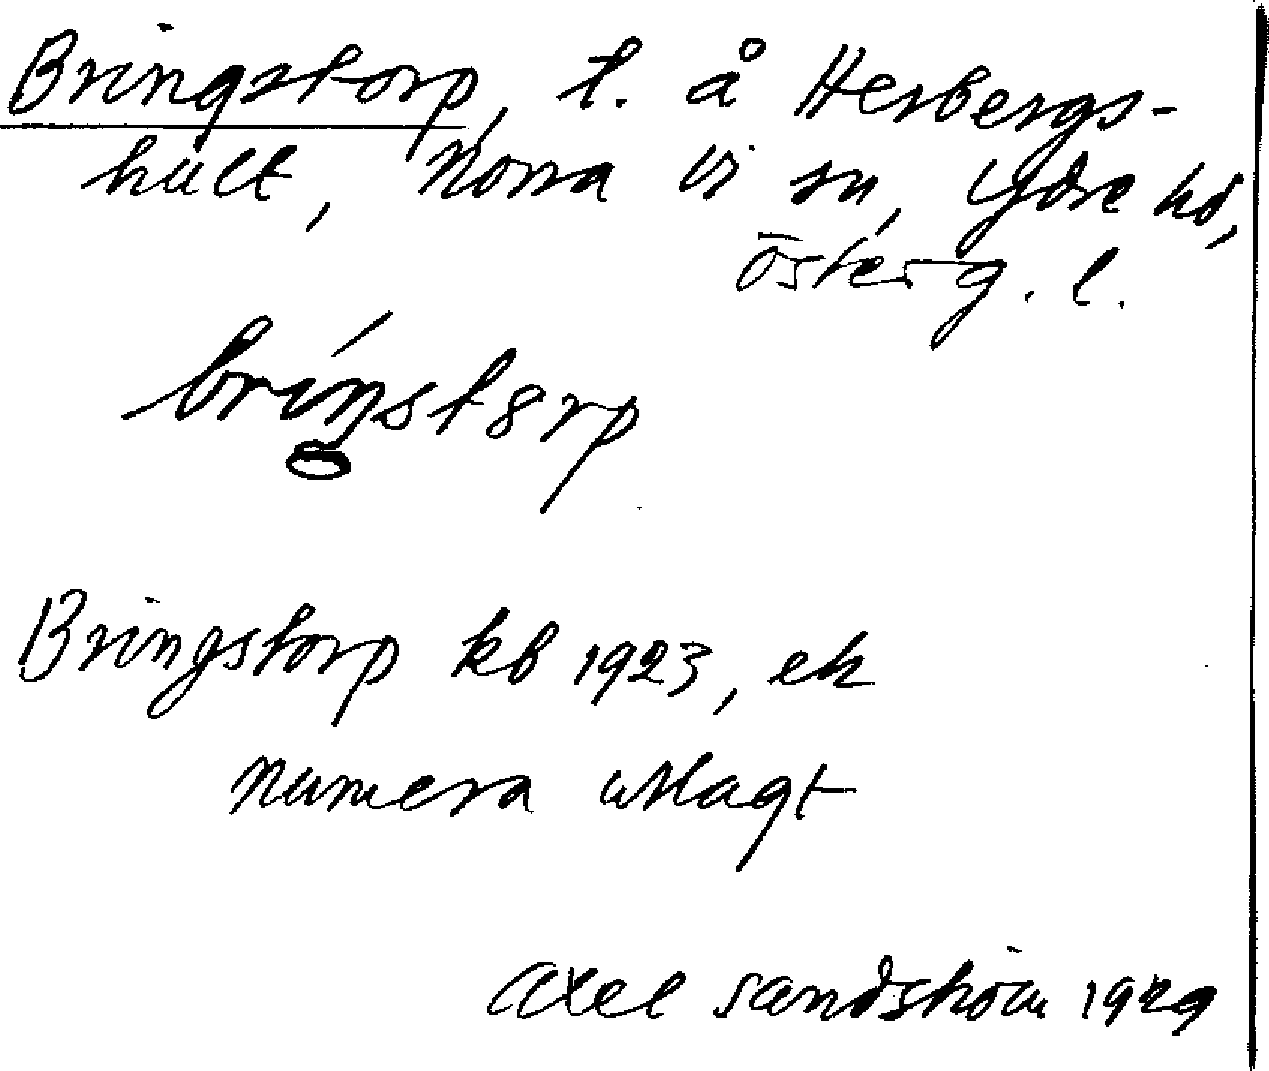 Bringstorp, t. å Herbergs-
hult, Norra Vi sn, Ydre hd,
Österg. l.
bríŋstɔrp
Bringstorp kb 1923, ek
numera utlagt
Axel Sandström 1929